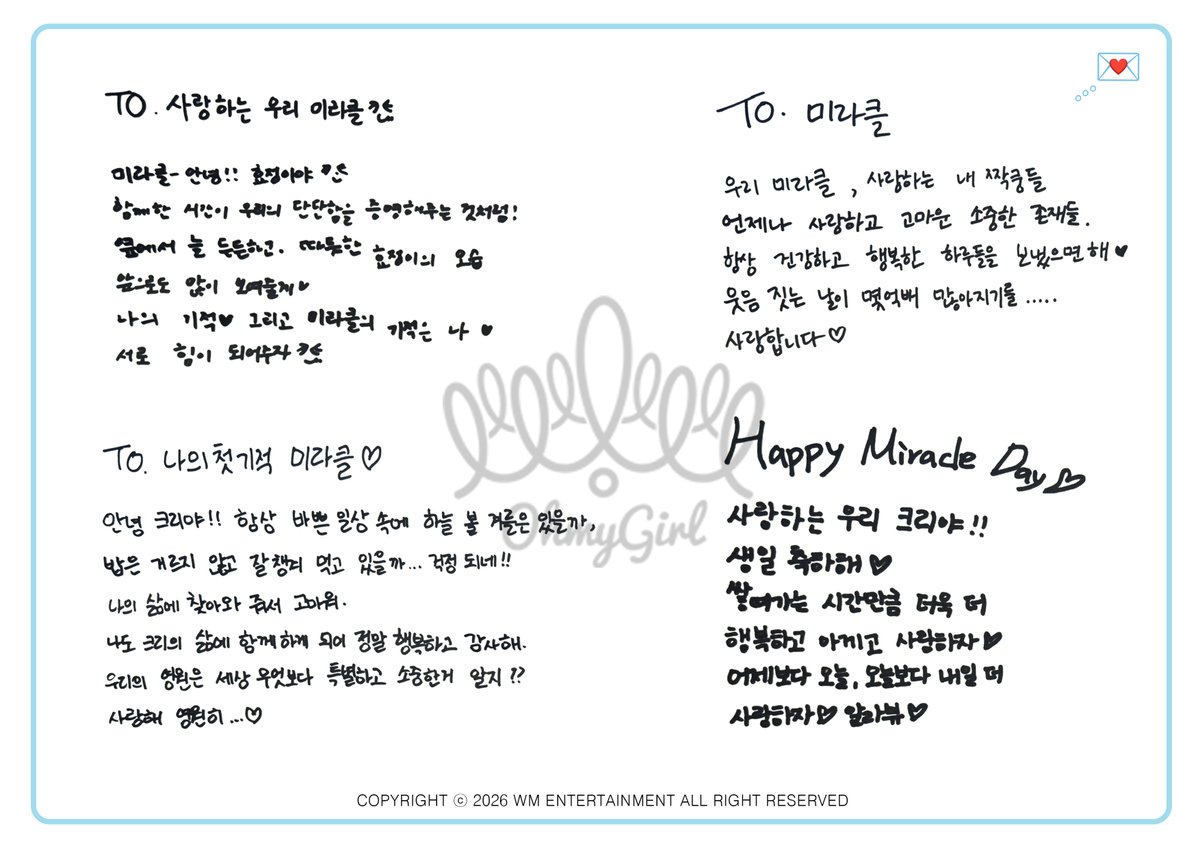 TO. 사랑하는 우리 미라클
미라클- 안녕!! 효정이야
함께한 시간이 우리의 단단함을 증명해주는 것처럼!
옆에서 늘 든든하고. 따뜻한 효정이의 모습
앞으로도 많이 보여줄게♥
나의 기적♥ 그리고 미라클의 기적은 나 ♥
서로 힘이 되어주자
TO. 미라클
우리 미라클, 사랑하는 내 짝쿵들
언제나 사랑하고 고마운 소중한 존재들.
항상 건강하고 행복한 하루들을 보냈으면 해♥
웃음 짓는 날이 몇억배 많아지기를.....
사랑합니다♡
TO. 나의 첫기적 미라클♡
안녕 크리야!! 항상 바쁜 일상 속에 하늘 볼 겨를은 있을까,
밥은 거르지 않고 잘 챙겨 먹고 있을까... 걱정 되네!!
나의 삶에 찾아와 줘서 고마워.
나도 크리의 삶에 함께 하게 되어 정말 행복하고 감사해.
우리의 영원은 세상 무엇보다 특별하고 소중한거 알지??
사랑해 영원히...♡
Happy Miracle Day♡
사랑하는 우리 크리야!!
생일 축하해♥
쌓여가는 시간만큼 더욱 더
행복하고 아끼고 사랑하자♥
어제보다 오늘, 오늘보다 내일 더
사랑하자♡ 알라뷰♡
OhmyGirl
COPYRIGHT ⓒ 2026 WM ENTERTAINMENT ALL RIGHT RESERVED